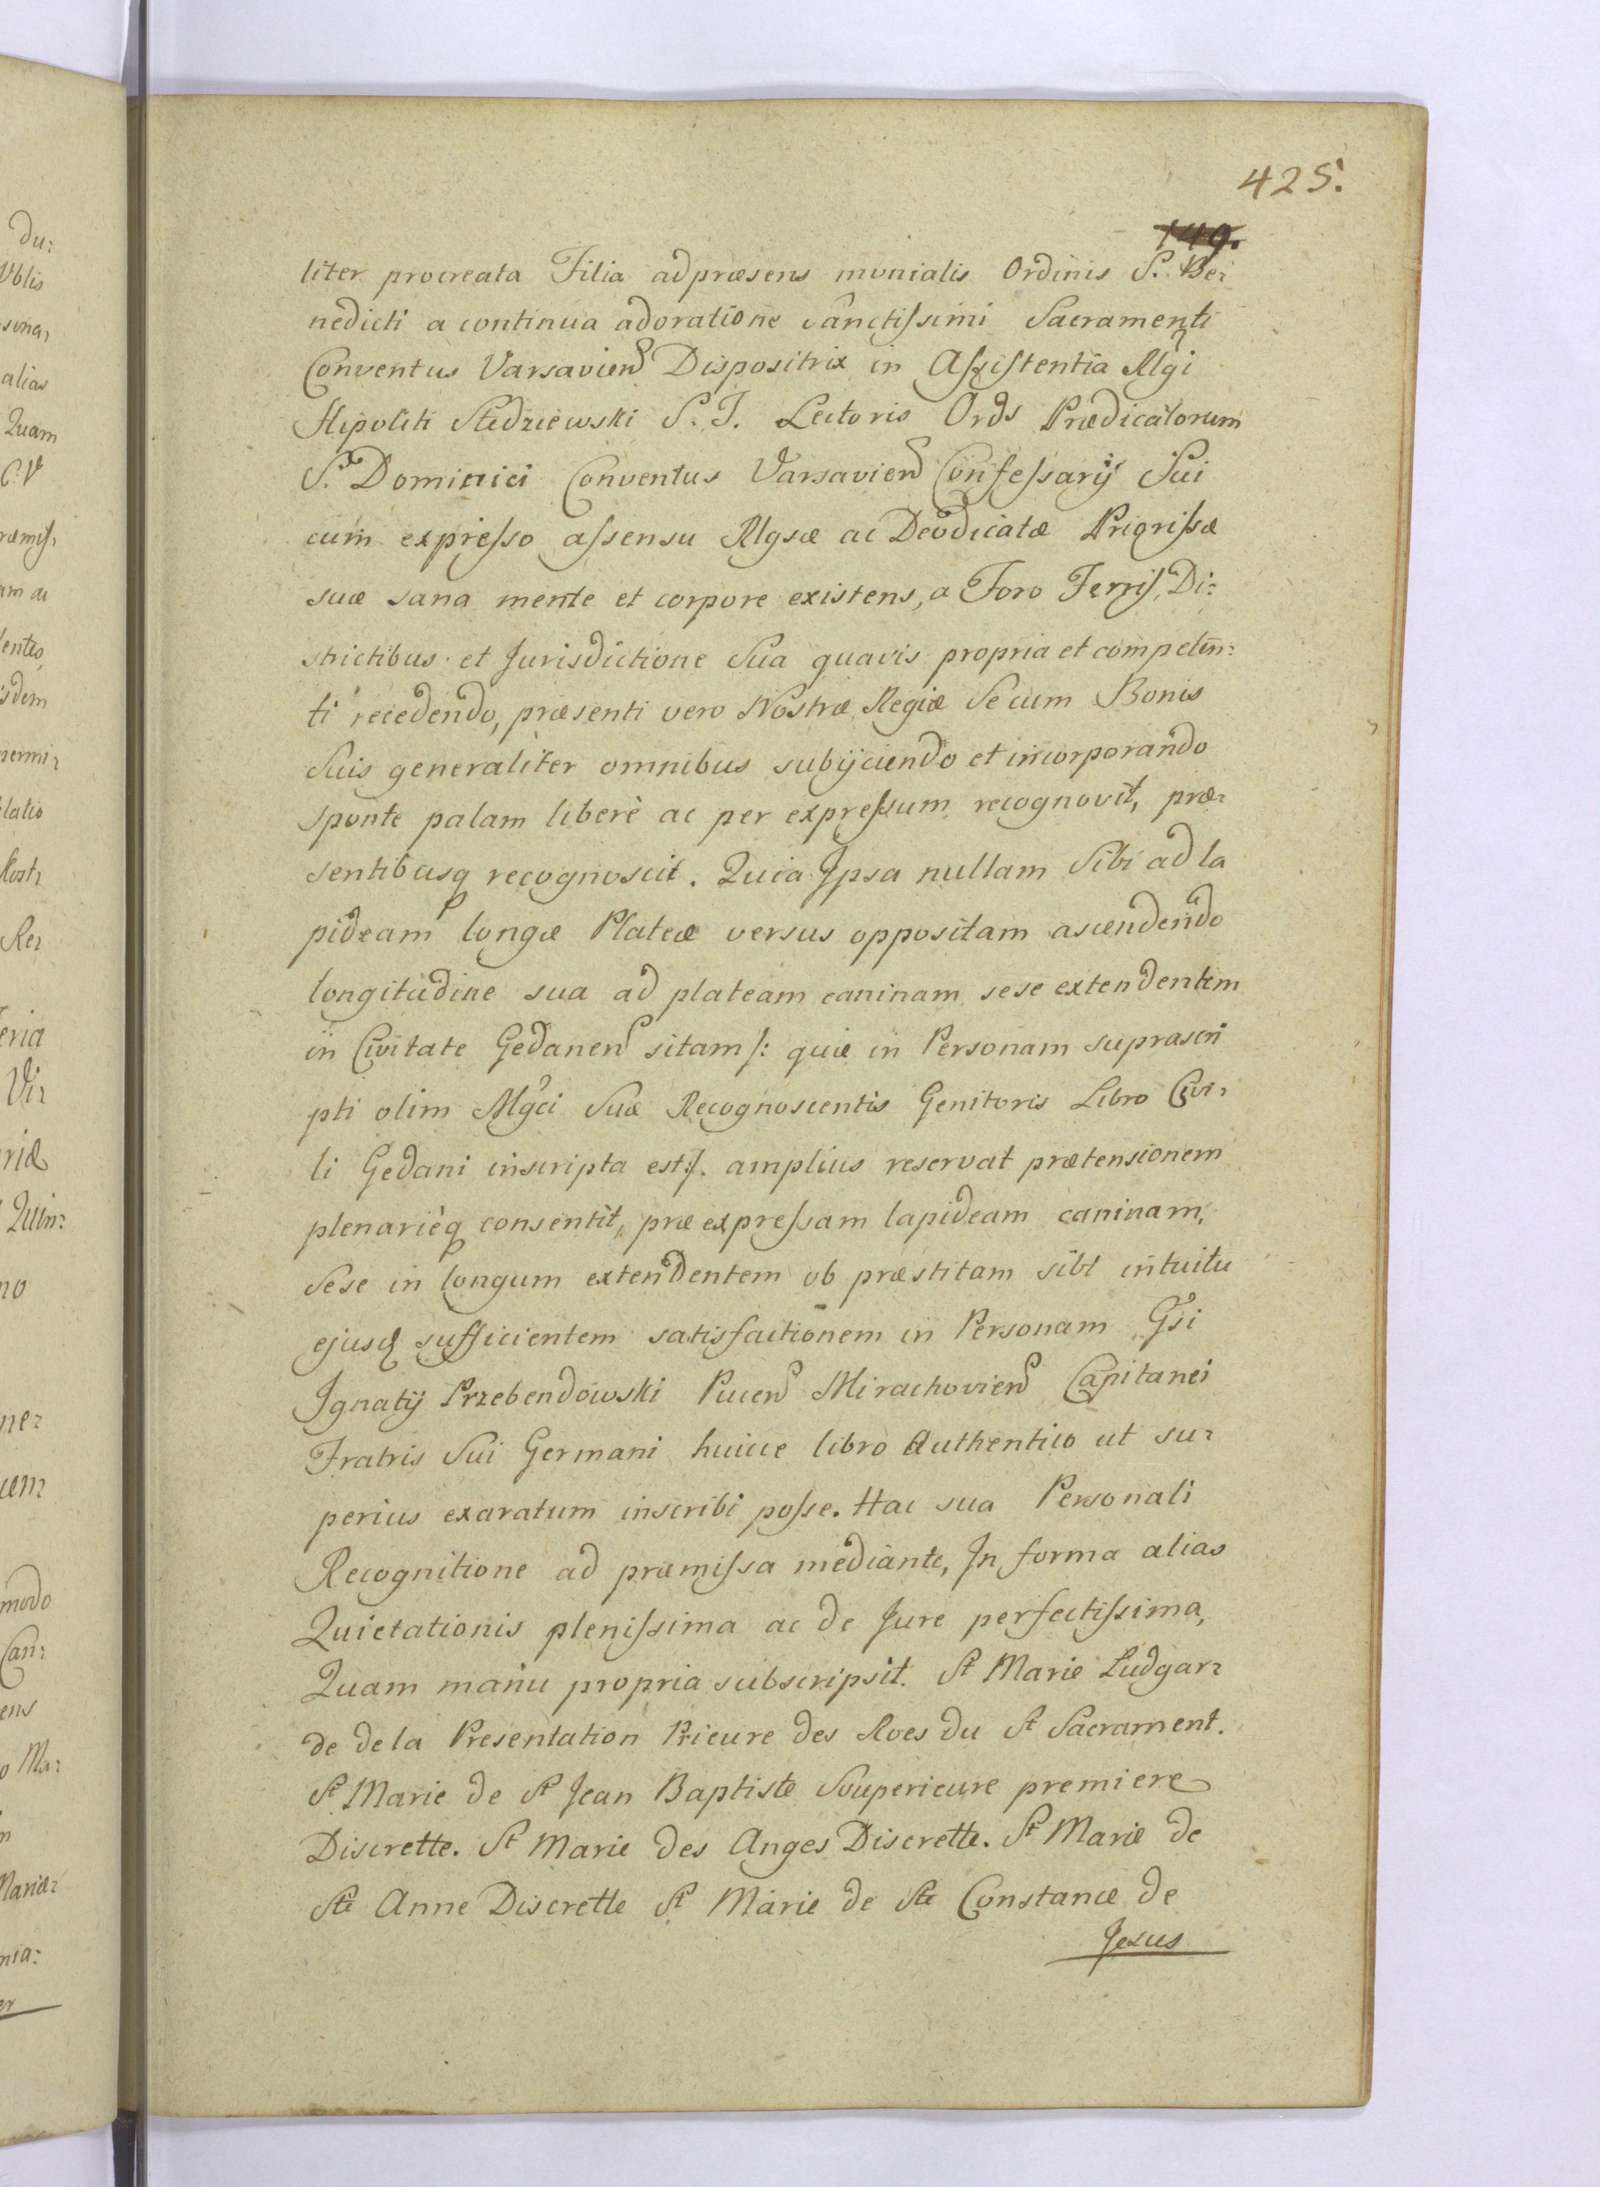 425.
149.
liter procreata Filia ad præsens monialis Ordinis S. Be-
nedicti a continua adoratione sanctissimi Sacramenti
Conventus Varsavien Dispositrix in Assistentia Rlgi
Hipoliti Sledziewski S. T. Lectoris Ords Prædicatorum
S. Dominici Conventus Varsavien Confessarij Sui
cum expresso assensu Rlgsæ ac Deodicatæ Prigrissæ
suæ sana mente et corpore existens, a Foro Terris, Di-
strictibus et Jurisdictione Sua quavis propria et competen-
ti recedendo, præsenti vero Nostræ Regiæ Se cum Bonis
Suis generaliter omnibus subijciendo et incorporando
sponte palam liberè ac per expressum recognovit, præ-
sentibusq recognoscit. Quia Ipsa nullam Sibi ad la
pideam longæ Plateæ versus oppositam ascendendo
longitudine sua ad plateam caninam sese extendentem
in Civitate Gedanen sitam /: quæ in Personam suprascri
pti olim Mgci Suæ Recognoscentis Genitoris Libro Civi-
li Gedani inscripta est :/. amplius reservat prætensionem
plenarièq consentit, præ expressam lapideam caninam,
Sese in longum extendentem ob præstitam sibi intuitu
ejusq sufficientem satisfactionem in Personam Gsi
Ignatij Przebendowski Pucen Mirachovien Capitanei
Fratris Sui Germani huice libro Authentico ut su-
perius exaratum inscribi posse. Hac sua Personali
Recognitione ad præmissa mediante, In forma alias
Quietationis plenissima ac de Jure perfectissima,
Quam manu propria subscripsit. Sr Marie Ludgar-
de de la Presentation Prieure des Roes du St Sacrament.
Sr Marie de St Jean Baptiste Souperieure premiere
Discrette. Sr Marie des Anges Discrette. Sr Marie de
Ste Anne Discrette Sr Marie de Ste Constance de
Jesus